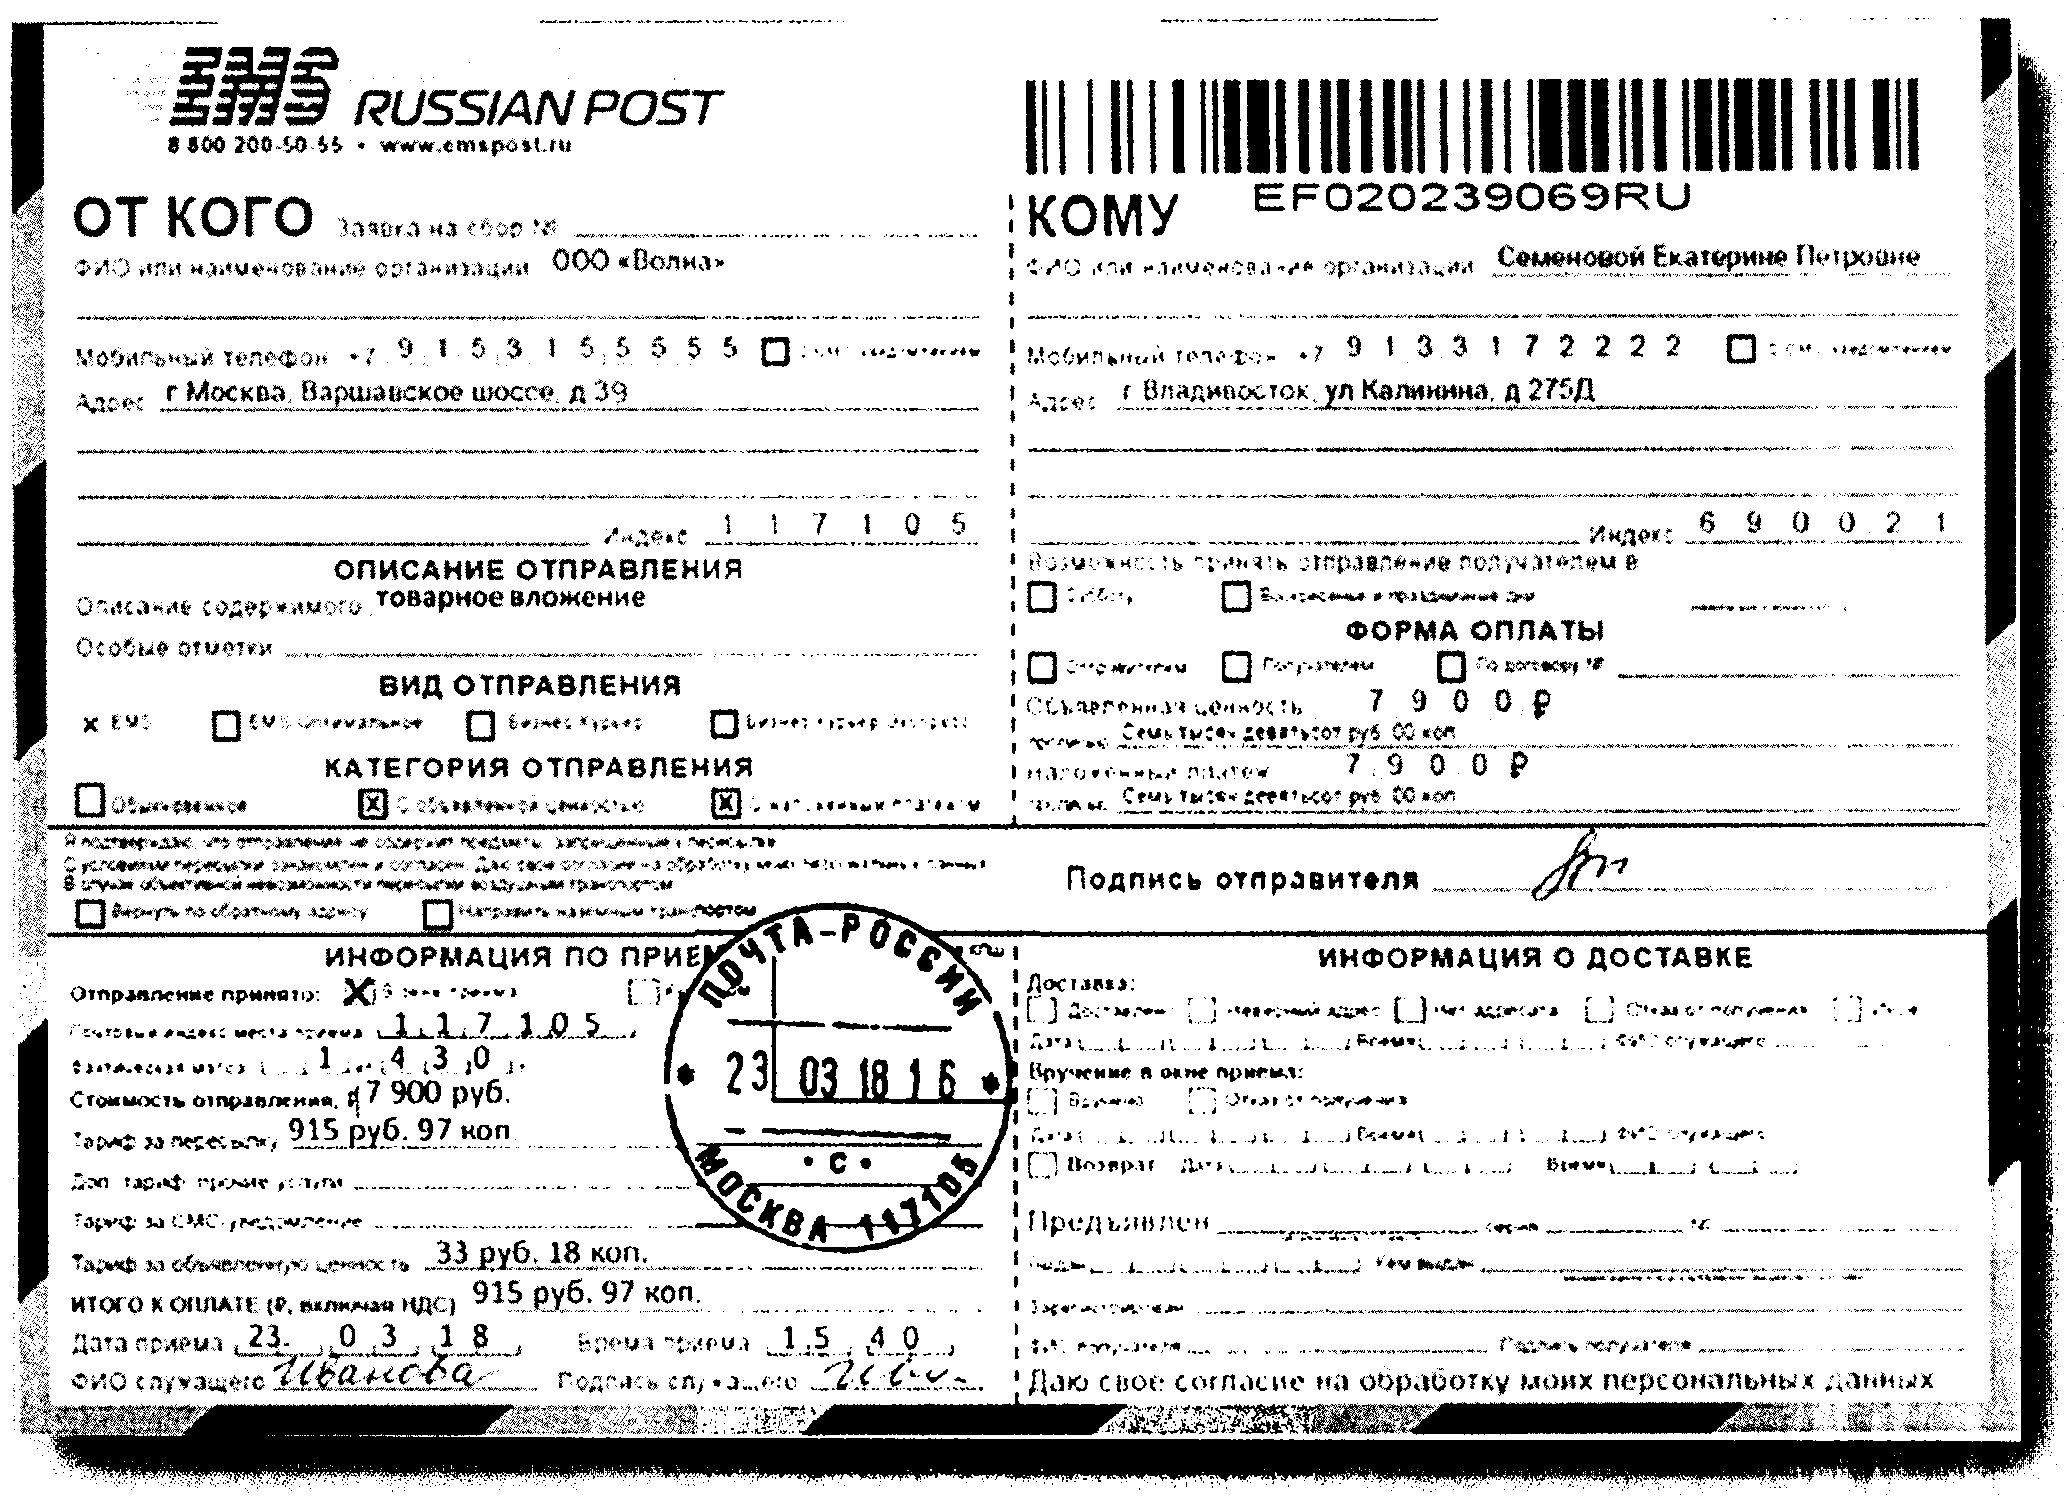 EMS RUSSIAN POST
8 800 200-50-55 • www.emspost.ru
EF020239069RU
ОТ КОГО Заявка на сбор №
ФИО или наименование организации ООО «Волна»
Мобильный телефон +7 9 1 5 3 1 5 5 5 5 5
Адрес г Москва, Варшавское шоссе, д 39
Индекс 1 1 7 1 0 5
ОПИСАНИЕ ОТПРАВЛЕНИЯ
Описание содержимого товарное вложение
Особые отметки
ВИД ОТПРАВЛЕНИЯ
x EMS EMS Оптимальное Бизнес Курьер Бизнес Курьер Экспресс
КАТЕГОРИЯ ОТПРАВЛЕНИЯ
Обыкновенное X С объявленной ценностью X С наложенным платежом
КОМУ
ФИО или наименование организации Семеновой Екатерине Петровне
Мобильный телефон +7 9 1 3 3 1 7 2 2 2 2
Адрес г Владивосток, ул Калинина, д 275Д
Индекс 6 9 0 0 2 1
Возможность принять отправление получателем в
Субботу Воскресенье и праздничные дни
ФОРМА ОПЛАТЫ
Отправителем Получателем По договору №
Объявленная ценность 7 9 0 0 ₽
прописью Семь тысяч девятьсот руб. 00 коп
Наложенный платеж 7 9 0 0 ₽
прописью Семь тысяч девятьсот руб. 00 коп
Я подтверждаю, что отправление не содержит предметы, запрещенные к пересылке
С условиями пересылки ознакомлен и согласен. Даю свое согласие на обработку моих персональных данных
В случае объективной невозможности пересылки воздушным транспортом
Вернуть по обратному адресу Направить наземным транспортом
Подпись отправителя
ИНФОРМАЦИЯ ПО ПРИЕМ
Отправление принято: X В окне приема
Почтовый индекс места приема 1 1 7 1 0 5
Фактическая масса 1 4 3 0
Стоимость отправления, 7 900 руб.
Тариф за пересылку 915 руб. 97 коп
Доп. тариф, прочие услуги
Тариф за СМС-уведомление
Тариф за объявленную ценность 33 руб. 18 коп.
ИТОГО К ОПЛАТЕ (₽, включая НДС) 915 руб. 97 коп.
Дата приема 23. 0 3 1 8 Время приема 1 5 4 0
ФИО служащего Иванова Подпись служащего
ПОЧТА-РОССИИ
23 03 18 16
• С •
МОСКВА 117105
ИНФОРМАЦИЯ О ДОСТАВКЕ
Доставка:
Доставлен Неверный адрес Нет адресата Отказ от получения Иное
Дата Время ФИО служащего
Вручение в окне приема:
Вручено Отказ от получения
Дата Время ФИО служащего
Возврат Дата Время
Предъявлен серия №
Выдан Кем выдан
Зарегистрирован
ФИО получателя Подпись получателя
Даю свое согласие на обработку моих персональных данных